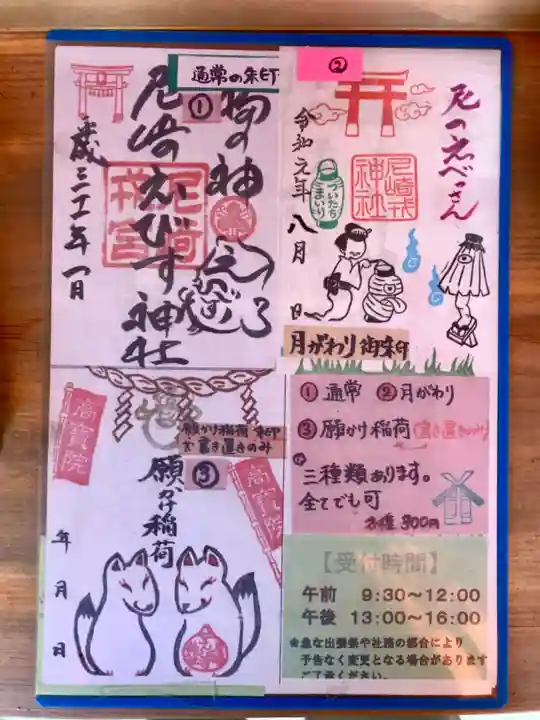 通常の朱印
①
福の神
尼崎えびす神社
平成三十一年一月
日
②
尼のえべっさん
尼崎戎
神社
ついたち
まいり
令和元年八月
日
月がわり御朱印
高寳院
願かけ稲荷 朱印
書き置きのみ
③
願かけ稲荷
高寳院
年月日
① 通常 ② 月がわり
③ 願かけ稲荷(書き置きのみ)
三種類あります。
全てでも可
各種 300円
【受付時間】
午前 9:30~12:00
午後 13:00~16:00
※急な出張祭や社務の都合により
予告なく変更となる場合があります
ご了承ください。